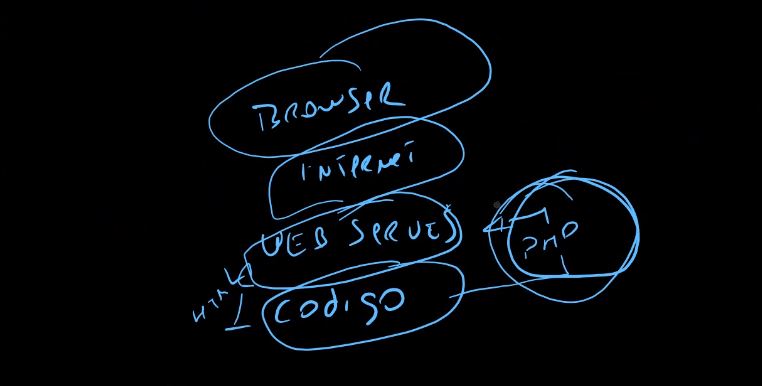 BROWSER
INTERNET
WEB SERVER
PHP
HTML
CODIGO